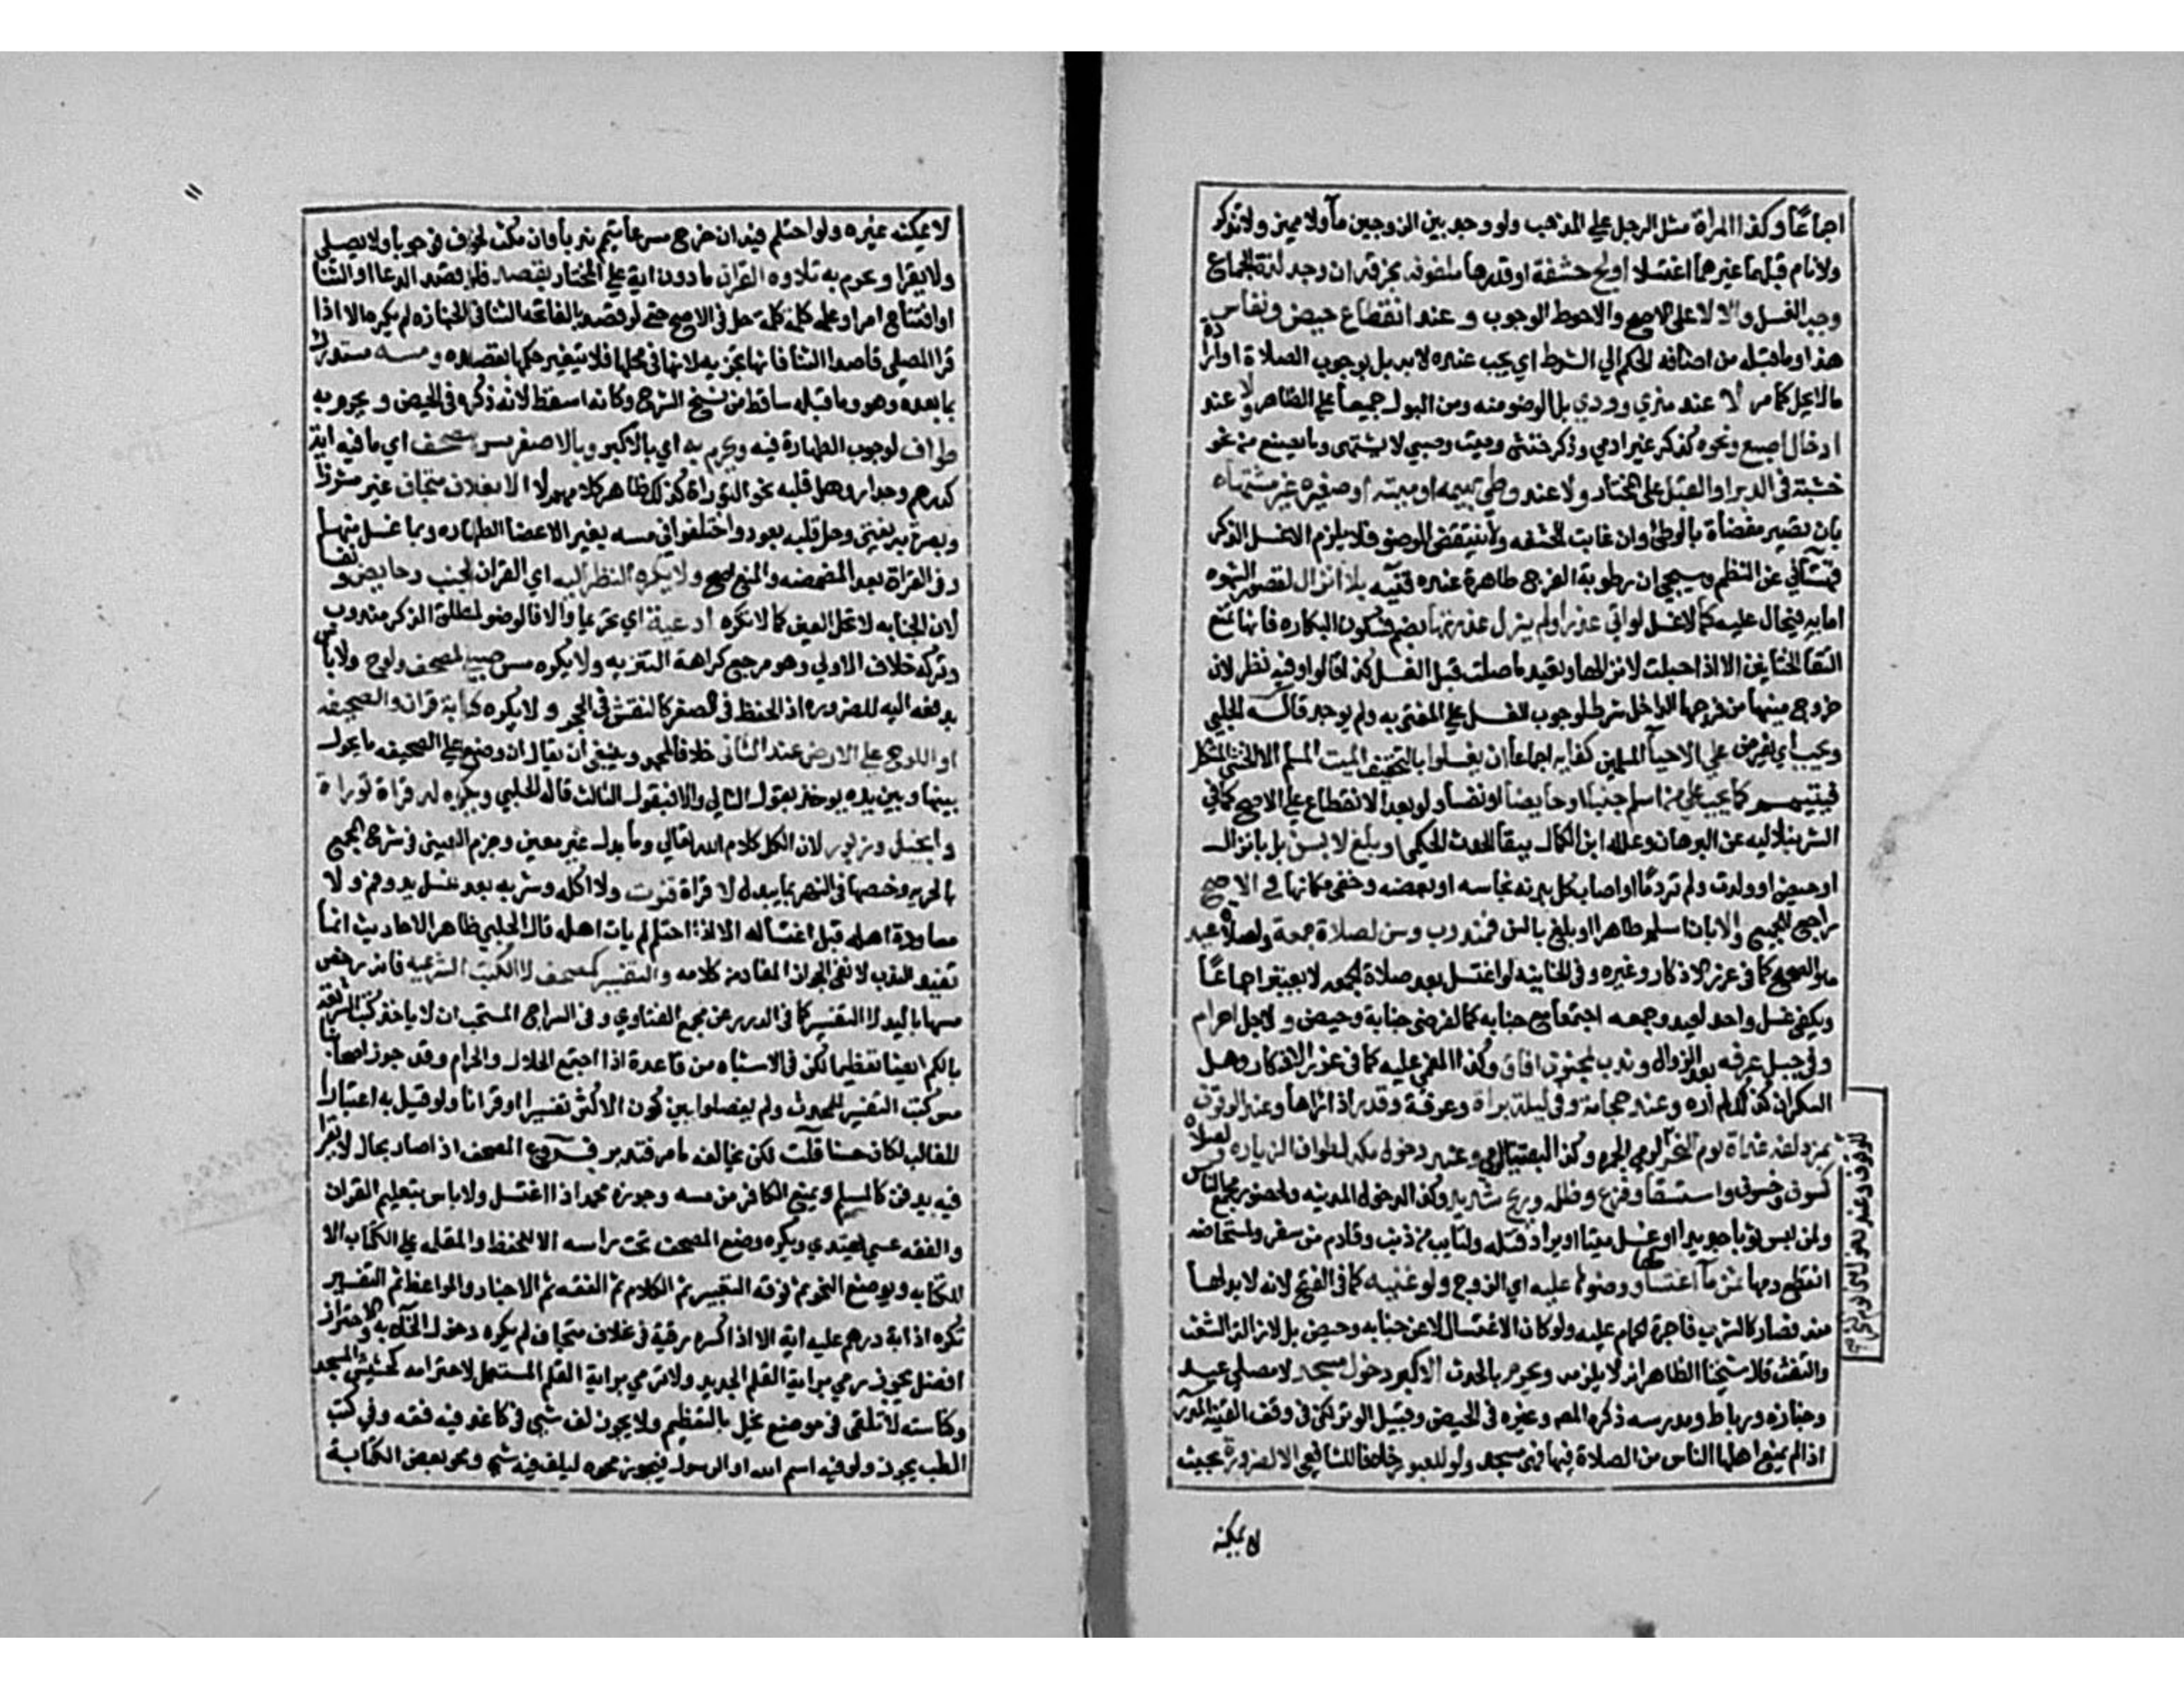 اجماعا وكذا المراة مثل الرجل علي المذهب ولو وجد بين الزوجين ماً ولا مميز ولا تذكر
ولا نام قبلهما غيرهما اغتسلا اولج حشفة او قدرها ملفوفه بخرقة ان وجد لذة الجماع
وجب الغسل والا لا على الاصح والاحوط الوجوب وعند انقطاع حيض ونفاس
هذا وما قبله من اضافة الحكم الي الشرط اي يجب عنده لا به بل بوجوب الصلاة او ارادة
مالا يحل كما مر لا عند مذي وودي بل الوضو منه ومن البول جميعا علي الظاهر ولا عند
ادخال اصبع ونحوه كذكر غير ادمي وذكر خنثى وميت وصبي لا يشتهى وما يصنع من نحو
خشبة في الدبر او القبل على المختار ولا عند وطي بهيمه او ميته او صغيره غير مشتهاه
بان تصير مفضاة بالوطئ وان غابت الحشفه ولا ينتقض الوضو فلا يلزم الا غسل الذكر
قهستاني عن النظم وسيجي ان رطوبة الفرج طاهرة عنده فتنبه بلا انزال لقصور الشهوه
اما به فيحال عليه كما لا غسل لو اتي عذرا ولم يزل عذرتها بضم فسكون البكاره فانها تمنع
التقا الختانين الا اذا حبلت لانزالها وتعيد ما صلت قبل الغسل كذا قالوا وفيه نظر لان
خروج منيها من فرجها الداخل شرط لوجوب الغسل علي المفتى به ولم يوجد قاله الحلبي
ويجب اي يفرض علي الاحيآ المسلمين كفايه اجماعا ان يغسلوا بالتخفيف الميت المسلم الا الخنثى المشكل
فيتيمم كما يجب علي من اسلم جنبا او حايضا او نفسا ولو بعد الانقطاع علي الاصح كما في
الشرنبلاليه عن البرهان وعلله ابن الكمال ببقا الحدث الحكمي او بلغ لا بسن بل بانزال
او حيض او ولدت ولم تر دما او اصاب كل بدنه نجاسه او بعضه وخفي مكانها في الاصح
راجع للجميع والا بان اسلم طاهرا او بلغ بالسن فمندوب وسن لصلاة جمعة ولصلاة عيد
هو الصحيح كما في غرر الاذكار وغيره وفي الخانيه لو اغتسل بعد صلاة الجمعه لا يعتبر اجماعاً
ويكفي غسل واحد لعيد وجمعه اجتمعا مع جنابه كما لفرضي جنابة وحيض ولاجل احرام
وفي جبل عرفه بعد الزوال وندب لمجنون افاق وكذا المغمي عليه كما في غرر الاذكار وهل
السكران كذلك لم اره وعند حجامة وفي ليلة براة وعرفة وقدر اذا راها وعند الوقوف
بمزدلفه غداة يوم النحر لرمي الجمره وكذا لبقية الرمي وعند دخول مكه لطواف الزياره ولصلاة
كسوف وخسوف واستسقا وفزع وظلمه وريح شديد وكذا لدخول المدينه ولحضور مجمع الناس
ولمن لبس ثوبا جديدا او غسل ميتا او يراد قتله ولتايب من ذنب وقادم من سفر ولمستحاضه
انقطع دمها ثمن مآ اغتسالها ووضوئها عليه اي الزوج ولو غنيه كما في الفتح لانه لا بد لها
منه فصار كالشرب فاجرة الحمام عليه ولو كان الاغتسال لا عن جنابه وحيض بل لازالة الشعث
والتفث قال شيخنا الظاهر انه لا يلزمه ويحرم بالحدث الاكبر دخول مسجد لا مصلي عيد
وجنازه ورباط ومدرسه ذكره المص وغيره في الحيض وقبيل الوتر لكن في وقف القنيه المدرسه
اذا لم يمنع اهلها الناس من الصلاة فيها فهي مسجد ولو للعبور خلافا للشافعي الا لضرورة بحيث
لا يمكنه
١١
لا يمكنه غيره ولو احتلم فيه ان خرج مسرعا تيمم ندبا وان مكث لخوف فوجوبا ولا يصلي
ولا يقرا ويحرم به تلاوه القران ما دون اية علي المختار بقصده فلو قصد الدعا او الثنا
او افتتاح امر او علم كلمة كلمة حل في الاصح حتى لو قصد بالفاتحه الثنا في الجنازه لم يكره الا اذا
قرا المصلي قاصدا الثنا فانها تجزيه لانها في محلها فلا يتغير حكمها بقصده ومسه مستدرك
بما بعده وهو وما قبله ساقط من نسخ الشرح وكانه اسقطه لانه ذكره في الحيض ويحرم به
طواف لوجوب الطهارة فيه ويحرم به اي بالاكبر وبالاصغر مس مصحف اي ما فيه اية
كدرهم وجدار وهل قلبه نحو التوراة كذلك ظاهر كلامهم لا الا بغلاف متجاف غير مشرز
وبصرة به يفتي وحل قلبه بعود واختلفوا في مسه بغير الاعضا الطهاره وبما غسل منها
وفي القراة بعد المضمضه والمنع اصح ولا يكره النظر اليه اي القران لجنب وحايض ونفسا
لان الجنابه لا تحل العين كما لا تكره ادعية اي تحريما والا فالوضو لمطلق الذكر مندوب
وتركه خلاف الاولي وهو مرجع كراهة التنزيه ولا يكره مس صبي لمصحف ولوح ولا باس
بدفعه اليه للضروره اذ الحفظ في الصغر كالنقش في الحجر ولا يكره كتابة قران والصحيفه
او اللوح علي الارض عند الثاني خلافا لمحمد وينبغي ان يقال ان وضع علي الصحيفه ما يحول
بينها وبين يده يوخذ بقول الثاني والا فبقول الثالث قاله الحلبي ويكره له قراة توراة
وانجيل وزبور لان الكل كلام الله تعالي وما بدل غير معين وجزم العيني في شرح المجمع
بالحرمه وخصها في النهر بما لم يبدل لا قراة قنوت ولا اكله وشربه بعد غسل يد وفم ولا
معاودة اهله قبل اغتساله الا اذا احتلم لم يات اهله قال الحلبي ظاهر الاحاديث انما
تفيد الندب لا نفي الجواز المفاد من كلامه والتفسير كمصحف لا الكتب الشرعيه فانه رخص
مسها باليد لا التفسير كما في الدرر عن مجمع الفتاوي وفي السراج المستحب ان لا ياخذ كتب الشريعة
بالكم ايضا تعظيما لكن في الاشباه من قاعدة اذا اجتمع الحلال والحرام وقد جوز اصحابنا
مس كتب التفسير للمحدث ولم يفصلوا بين كون الاكثر تفسيرا او قرانا ولو قيل به اعتبارا
للغالب لكان حسنا قلت لكن يخالفه ما مر فتدبر فروع المصحف اذا صار بحال لا يقرا
فيه يدفن كالمسلم ويمنع الكافر من مسه وجوزه محمد اذا اغتسل ولا باس بتعليم القران
والفقه عسي يهتدي ويكره وضع المصحف تحت راسه الا للحفظ والمقلمه علي الكتاب الا
للكتابه ويوضع النحو ثم فوقه التعبير ثم الكلام ثم الفقه ثم الاخبار والمواعظ ثم التفسير
تكره اذابة درهم عليه اية الا اذا كسره رقية في غلاف متجاف لم يكره دخول الخلاء به والاحتراز
افضل يجوز رمي براية القلم الجديد ولا ترمي براية القلم المستعمل لاحترامه كحشيش المسجد
وكناسته لا تلقى في موضع يخل بالتعظيم ولا يجوز لف شي في كاغد فيه فقه وفي كتب
الطب يجوز ولو فيه اسم الله او الرسول فيجوز محوه ليلف فيه شي ومحو بعض الكتابة